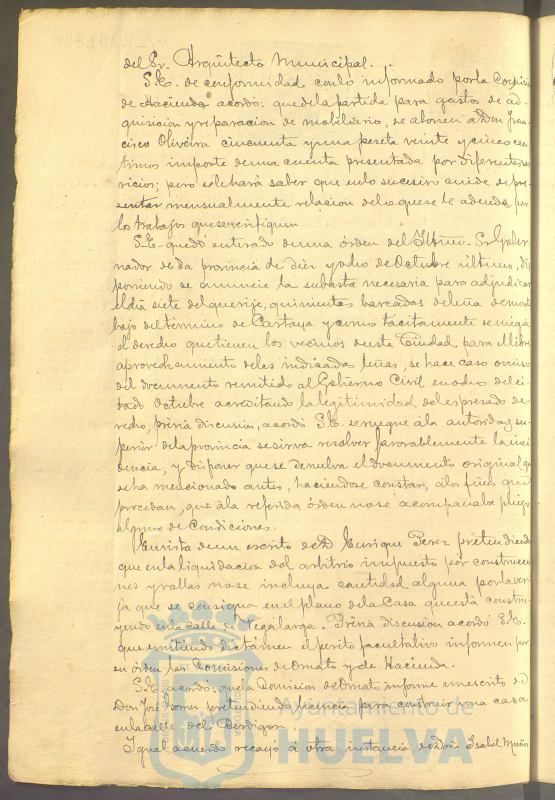 del Sr. Arquitecto Municipal.
S.E. de conformidad con lo informado por la Comision
de Hacienda acordó: que de la partida para gastos de ad-
quisicion y reparacion de mobiliario, se abonen a Don Fran-
cisco Oliveira cincuenta y una peseta veinte y cinco cen
timos importe de una cuenta presentada por diferentes ser
vicios; pero se le hará saber que en lo sucesivo cuide de pre-
sentar mensualmente relacion de lo que se le adeuda por
los trabajos que se verifiquen
S.E. quedó enterado de una órden del Iltmo. Sr. Gober
nador de la provincia de diez y ocho de Octubre último, dis
poniendo se anuncie la subasta necesaria para adjudicar
el dia siete del que rije, quinientas bareadas de leña de monte
bajo del término de Cartaya y como tácitamente se niega
el derecho que tienen los vecinos de esta Ciudad para el libre
aprovechamiento de las indicadas leñas, se hace caso omiso
del documento remitido al Gobierno Civil en ocho del ci-
tado Octubre acreditando la legitimidad del espresado de-
recho, prévia discusion, acordó S.E. se ruegue á la autoridad su-
perior de la provincia se sirva resolver favorablemente la inci
dencia, y disponer que se devuelva el documento original que
se ha mencionado antes, haciendose constar, á los fines que
procedan, que á la referida órden no se acompañaba pliego
alguno de Condiciones.
En vista de un escrito de D. Enrique Perez pretendiendo
que en la liquidacion del arbitrio impuesto por construccio
nes y vallas no se incluya cantidad alguna por la ver
ja que se consigna en el plano de la Casa que está constru-
yendo en la calle de Vegalarga. Prévia discusion acordó S.E.
que emitiendo dictámen el perito facultativo informen por
su órden las Comisiones de Ornato y de Hacienda.
S.E. acordó: que la Comision de Ornato informe un escrito de
Don José pretendiendo licencia para construir una casa
en la calle del Perdigon
Igual acuerdo recayó á otra instancia de Doña Isabel Muñoz
Ayuntamiento de
HUELVA